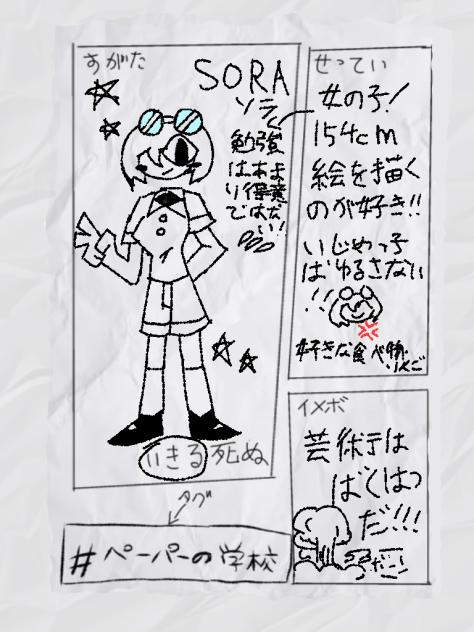 すがた
SORA
ソラ
勉強
はあま
り得意
ではな
い!
いきる 死ぬ
タグ
#ペーパーの学校
せってい
女の子!
154cm
絵を描く
のが好き!!
いじめっ子
はゆるさない
!!!
好きな食べ物
りんご
イメボ
芸術は
ばくはつ
だ!!!